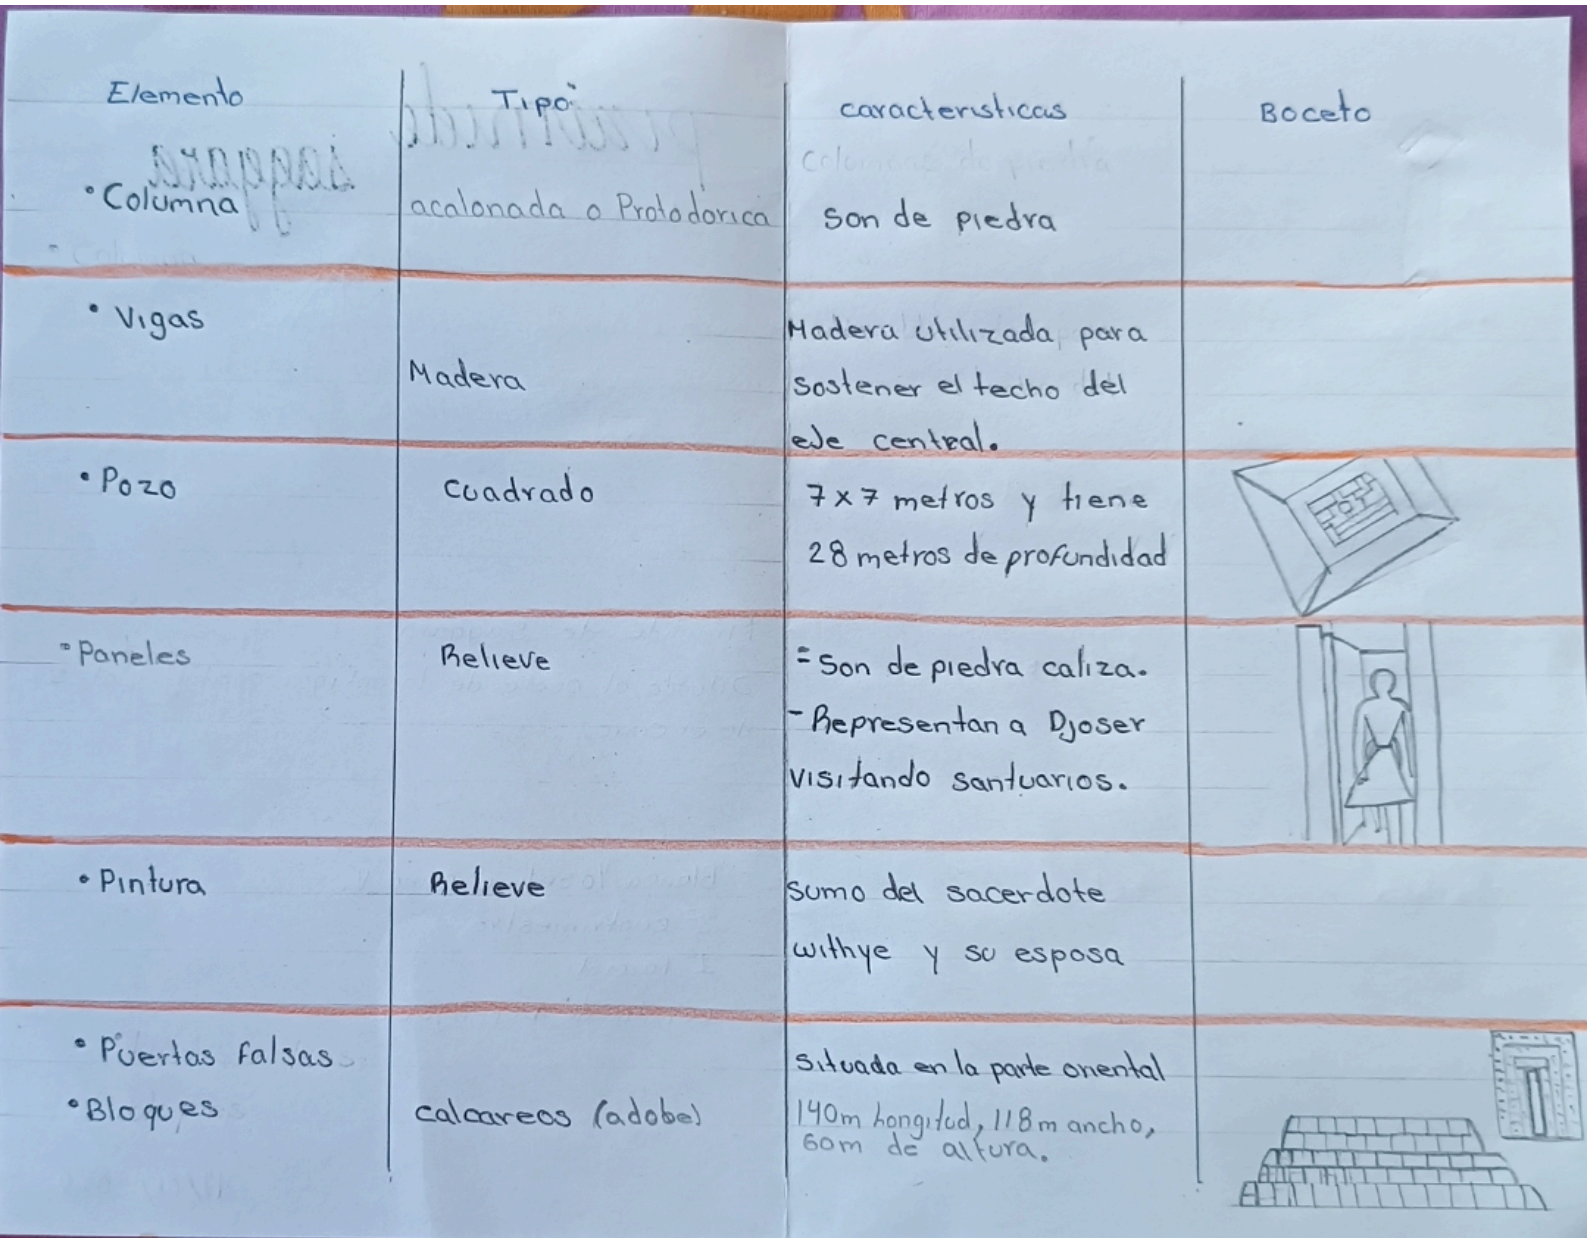 Elemento
Tipo
caracteristicas
Boceto
• Columna
acalonada o Protodorica
son de piedra
• Vigas
Madera
Madera utilizada para
sostener el techo del
eje central.
• Pozo
cuadrado
7 x 7 metros y tiene
28 metros de profundidad
• Paneles
Relieve
- Son de piedra caliza.
- Representan a Djoser
visitando santuarios.
• Pintura
Relieve
sumo del sacerdote
withye y su esposa
• Puertas falsas
situada en la parte oriental
• Bloques
calcareos (adobe)
140m longitud, 118m ancho,
60m de altura.